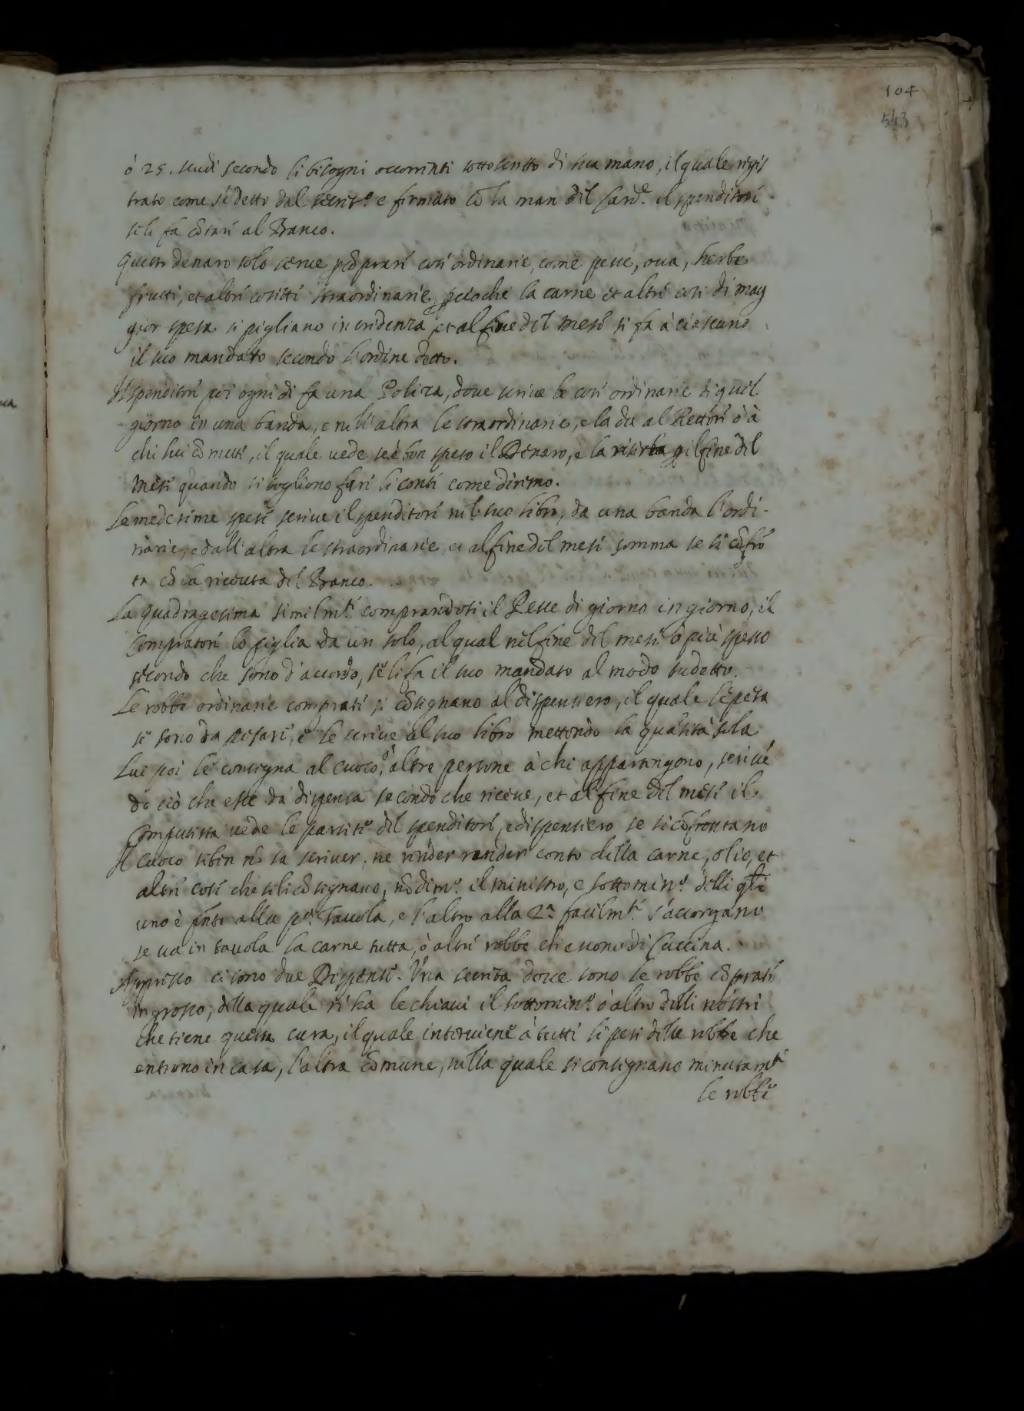 104
543
ò 25. scudi secondo li bisogni occorrenti sottoscritto di sua mano, il quale regis
trato come s'è detto dal secret.º e firmato cõ la man del Card.le il spenditore
se li fa cõtare al Banco.
Questo denaro solo serue p cõprare cose ordinarie, come pesce, oua, herbe
frutti, et altre cosette straordinarie, peroche la carne et altre cose di mag
gior spesa si pigliano in credenza, et al fine del mese si fa à ciascuno
il suo mandato secondo l'ordine detto.
Il spenditore poi ogni di fa una Poliza, doue scriue le cose ordinarie di quel
giorno in una banda, e nell'altra le straordinarie, e la da al Rettore ò à
chi lui cõmette, il quale uede se è ben speso il Denaro, e la riserba p il fine del
mese quando si uogliono fare li conti come diremo.
Le medesime spese scriue il spenditore nel suo libro, da una banda l'ordi-
narie, e dall'altra le straordinarie, et al fine del mese somma se si cõfrõ
ta cõ la riceuta del Banco.
La quadragesima similm.te comprandosi il Pesce di giorno in giorno, il
Compratore lo piglia da un solo, al qual nel fine del mese ò più spesso
secondo che sono d'accordo, se li fa il suo mandato al modo sudetto.
Le robbe ordinarie comprate si cõsegnano al dispensiero, il quale le pesa
se sono da pesare, e le scriue al suo libro mettendo la quantità sola
Lui poi le consegna al cuoco, ò altre persone à chi appartengono, scriuẽ
do ciò che esce da dispensa secondo che riceue, et al fine del mese il
Computista uede le partite del spenditore, e dispensiero se si cõfrontano
Il cuoco seben nõ sa scriuer, ne render render conto della carne, olio, et
altre cose che se li cõsegnano, nõdim.º il ministro, e sottomin.º delli q̃li
uno è pñte alla p.ª tauola, e l'altro alla 2.ª facilm.te s'accorgano
se ua in tauola la carne tutta, ò altre robbe ch'escono di Cucina.
Appresso ci sono due Dispense. Una secreta doue sono le robbe cõprate
in grosso, della quale ne ha le chiaui il sottomin.º ò altro delli nostri
che tiene questa cura, il quale interuiene à tutti li pesi delle robbe che
entrono in casa, l'altra cõmune, nella quale si consegnano minutam.te
le robbe